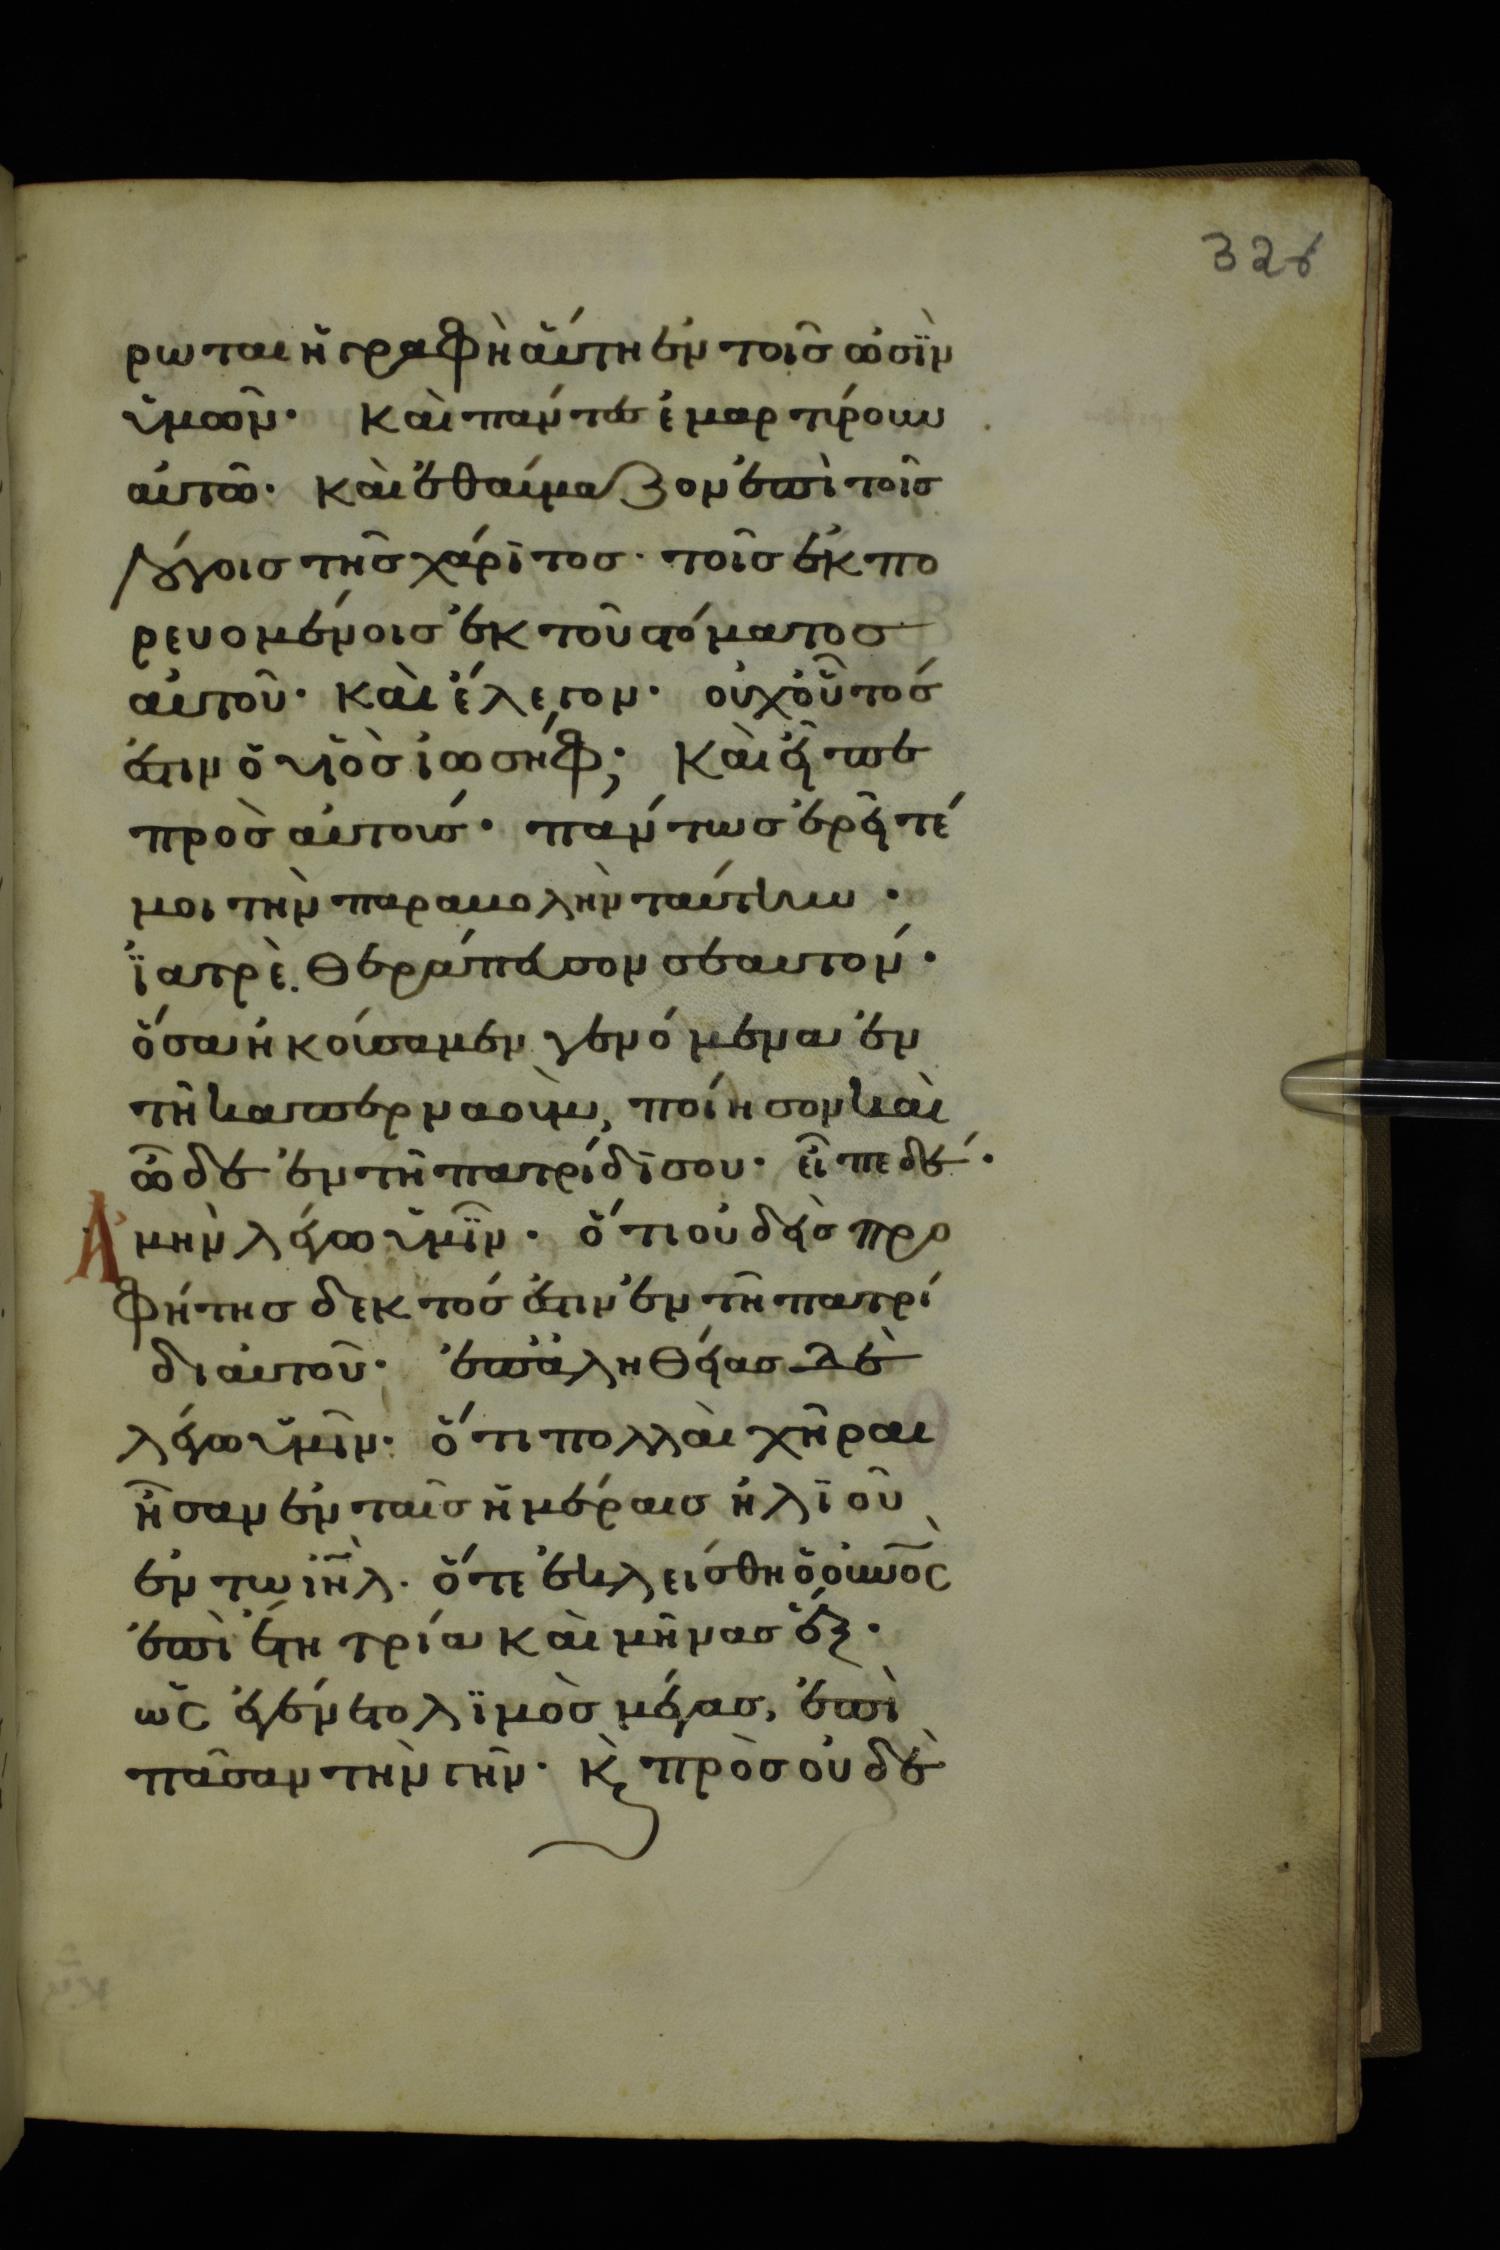 326
ρωται ἡ γραφὴ αὕτη ἐν τοῖς ὠσὶν
ὑμῶν· Καὶ πάντες ἐμαρτύρουν
αὐτῶ· καὶ ἐθαύμαζον ἐπὶ τοῖς
λόγοις τῆς χάριτος· τοῖς ἐκπο
ρευομένοις ἐκ τοῦ στόματος
αὐτοῦ· καὶ ἔλεγον· οὐχ οὗτός
ἐστιν ὁ υἱὸς ἰωσήφ; Καὶ εἶπε
πρὸς αὐτούς· πάντως ἐρεῖτέ
μοι τὴν παραβολὴν ταύτην·
ἰατρὲ. θεράπευσον σεαυτόν·
ὅσα ἠκούσαμεν γενόμενα ἐν
τῆ καπερναοὺμ, ποίησον καὶ
ὧδε ἐν τῆ πατρίδι σου· εἶπε δέ·
Ἀμὴν λέγω ὑμῖν· ὅτι οὐδεὶς προ
φήτης δεκτός ἐστιν ἐν τῆ πατρί
δι αὐτοῦ· ἐπ ἀληθείας δὲ
λέγω ὑμῖν· ὅτι πολλαὶ χῆραι
ἦσαν ἐν ταῖς ἡμέραις ἠλιοῦ
ἐν τω ἰῆλ· ὅτε ἐκλείσθη ὁ οὐνος
ἐπὶ ἔτη τρία καὶ μῆνας ἕξ·
ὡς ἐγένετο λιμὸς μέγας, ἐπὶ
πᾶσαν τὴν γῆν· κ πρὸς οὐδε